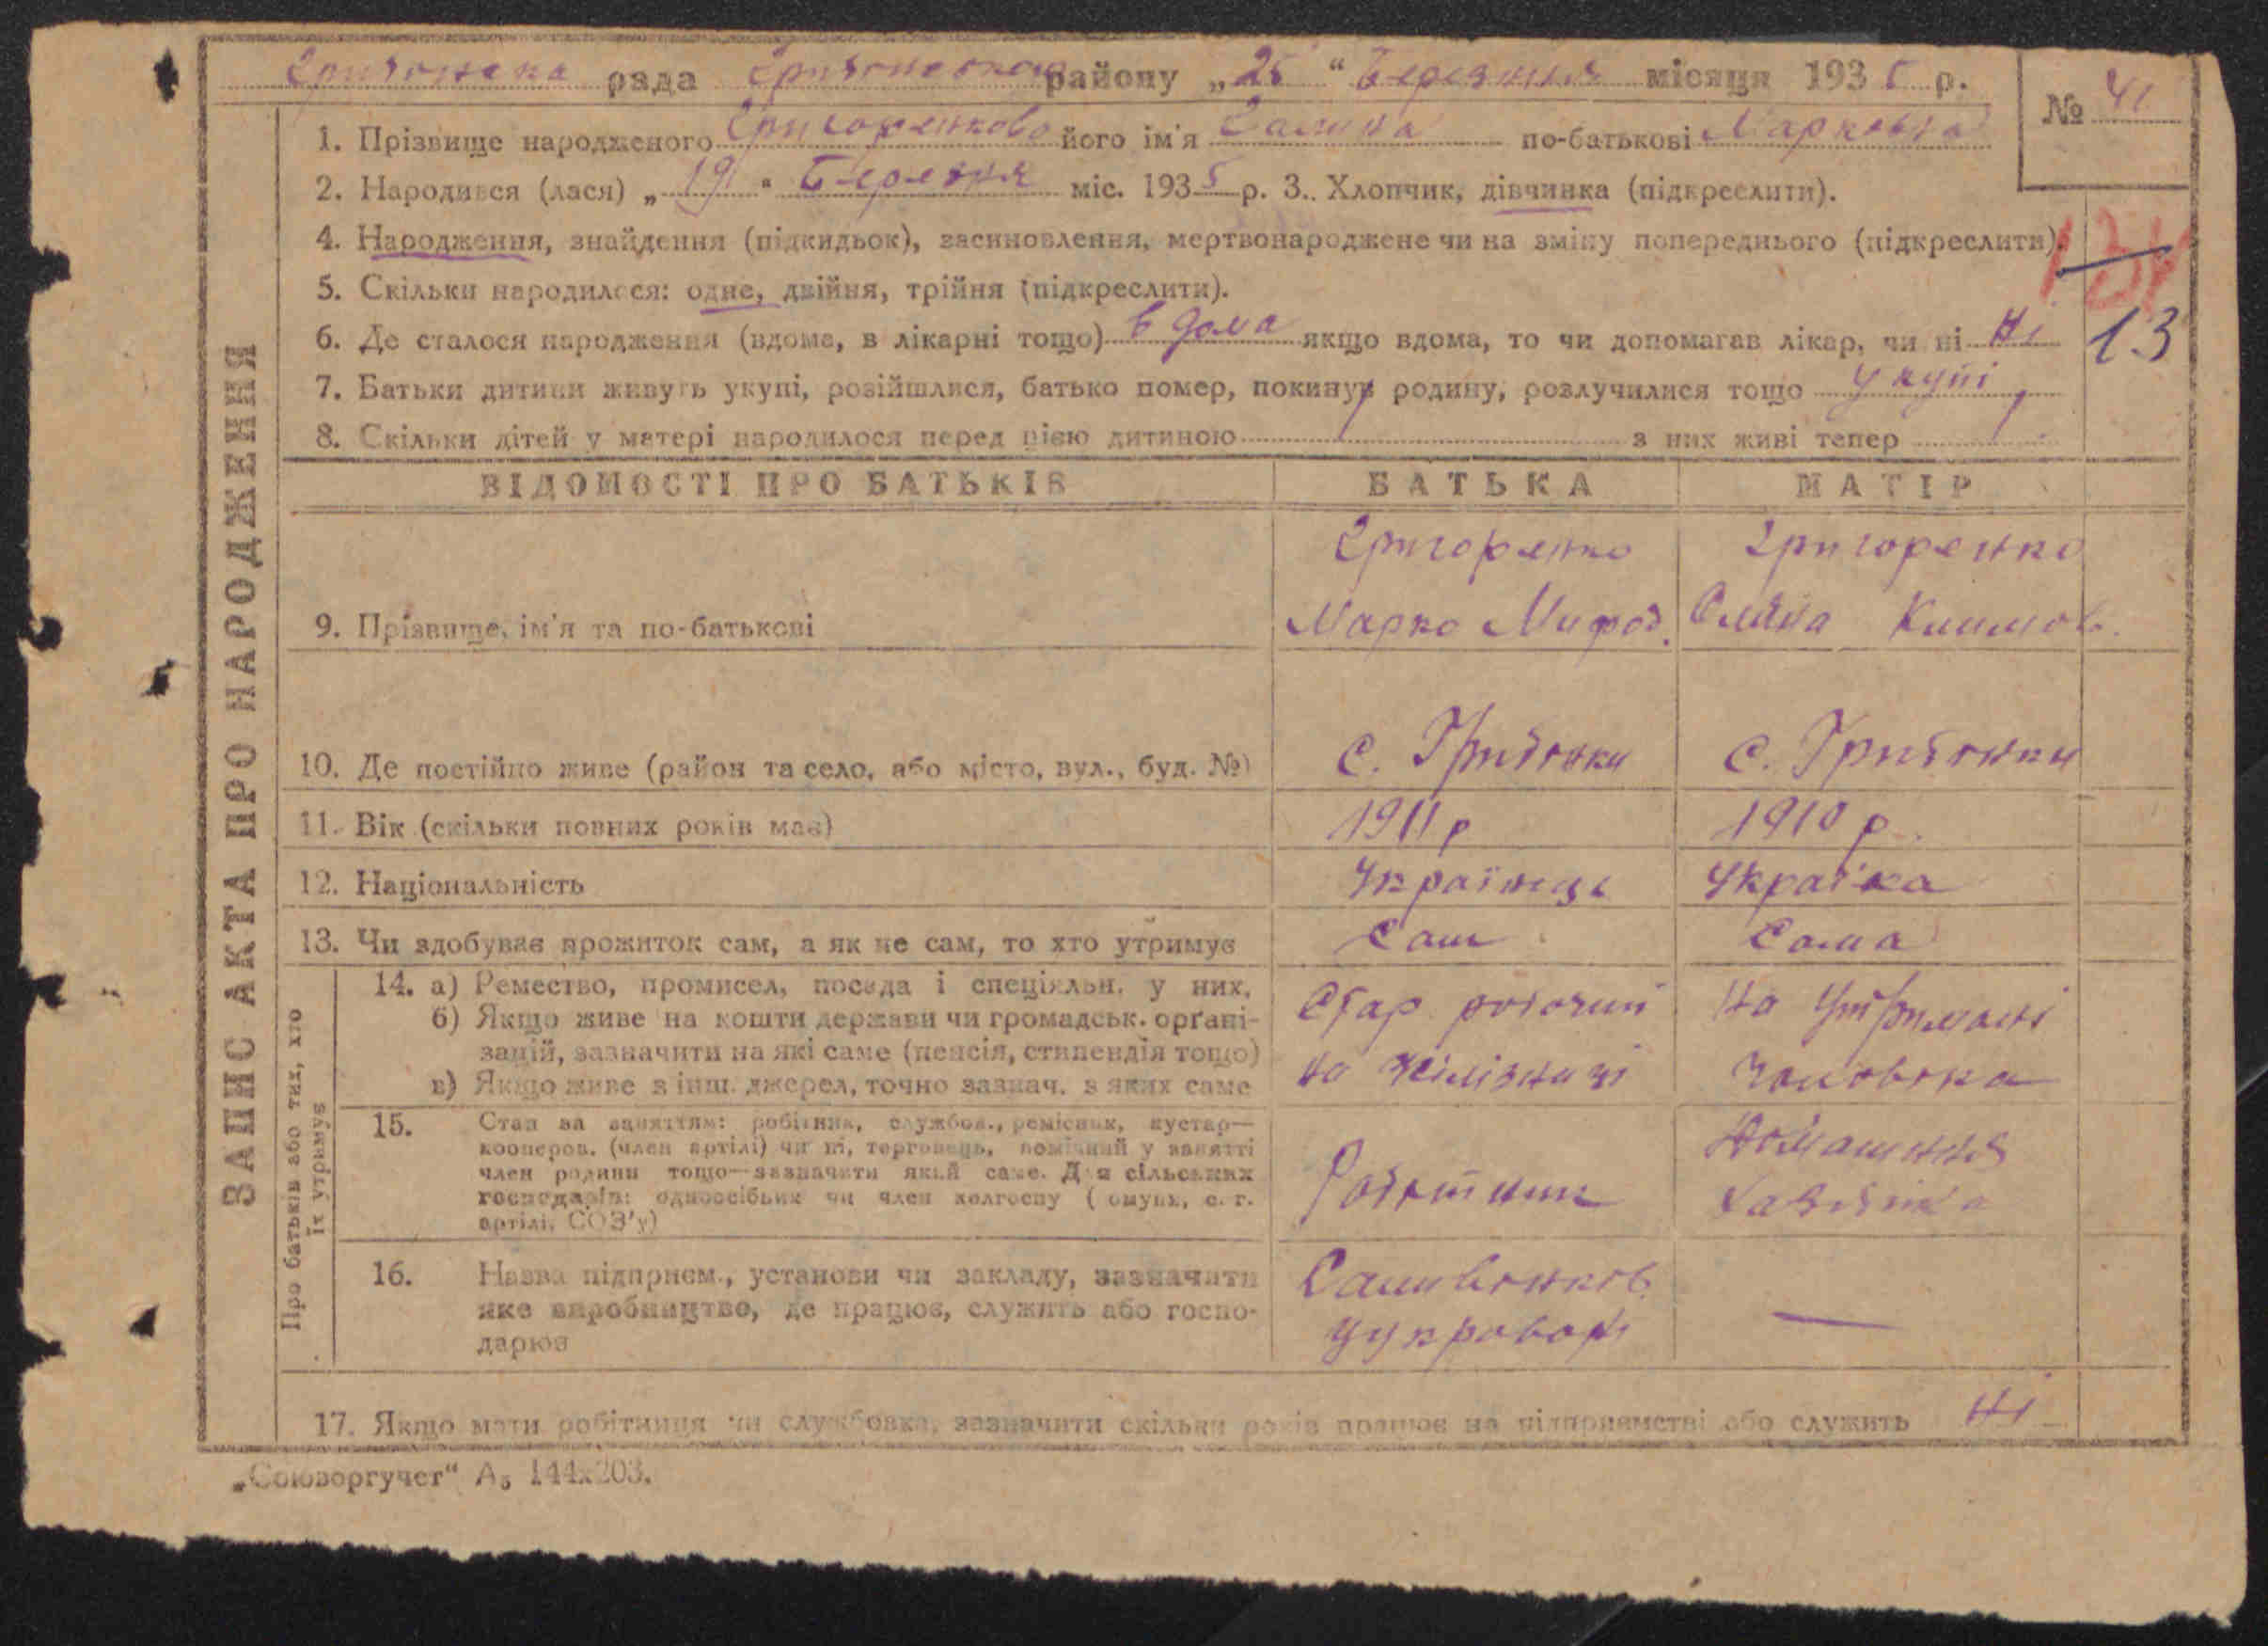 рада району „25“ Березня місяця 1935 р.
№ 41
1. Прізвище народженого Григоренково його ім'я Галина по-батькові Марковна
2. Народився (лася) „19“ Березня міс. 1935 р. 3.. Хлопчик, дівчинка (підкреслити).
4. Народження, знайдення (підкидьок), засиновлення, мертвонароджене чи на зміну попереднього (підкреслити).
5. Скільки народилося: одне, двійня, трійня (підкреслити).
6. Де сталося народження (вдома, в лікарні тощо) в дома якщо вдома, то чи допомагав лікар, чи ні Ні
13
7. Батьки дитини живуть укупі, розійшлися, батько помер, покинув родину, розлучилися тощо укупі
8. Скільки дітей у матері народилося перед цією дитиною 1 з них живі тепер 1
ЗАПИС АКТА ПРО НАРОДЖЕННЯ
ВІДОМОСТІ ПРО БАТЬКІВ БАТЬКА МАТІР
Григоренко Григоренко
9. Прізвище, ім'я та по-батькові Марко Мифод. Олина Климов.
10. Де постійно живе (район та село, або місто, вул., буд. №) с. Грибінки с. Грибінки
11. Вік (скільки повних років має) 1911 р 1910 р.
12. Національність Українець Українка
13. Чи здобуває прожиток сам, а як не сам, то хто утримує Сам Сама
Про батьків або тих, хто їх утримує
14. а) Ремество, промисел, посада і спеціяльн. у них,
б) Якщо живе на кошти держави чи громадськ. орґані-
зацій, зазначити на які саме (пенсія, стипендія тощо)
в) Якщо живе з інш. джерел, точно зазнач. з яких саме
Стар робочий
на желізниці
На утримані
чоловіка
15. Стан за заняттям: робітник, службов., ремісник, кустар—
кооперов. (член артілі) чи ні, торговець, помічний у занятті
член родини тощо—зазначити який саме. Для сільських
господарів: одноосібник чи член колгоспу (комуни, с. г.
артілі, СОЗ'у)
Робітник
Домашння
хазяйка
16. Назва підприєм., установи чи закладу, зазначити
яке виробництво, де працює, служить або госпо-
дарює
Саливонков.
цукроварні
—
17. Якщо мати робітниця чи службовка, зазначити скільки років працює на підприємстві або служить Ні
„Союзоргучет“ А₅ 144х203.